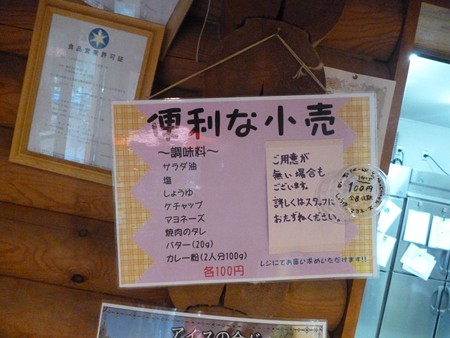 食品営業許可証
便利な小売
～調味料～
サラダ油
塩
しょうゆ
ケチャップ
マヨネーズ
焼肉のタレ
バター(20g)
カレー粉(2人分100g)
各100円
ご用意が
無い場合も
ございます。
詳しくはスタッフに
おたずねください。
100円
レジにてお買い求めいただけます!!
アイスの